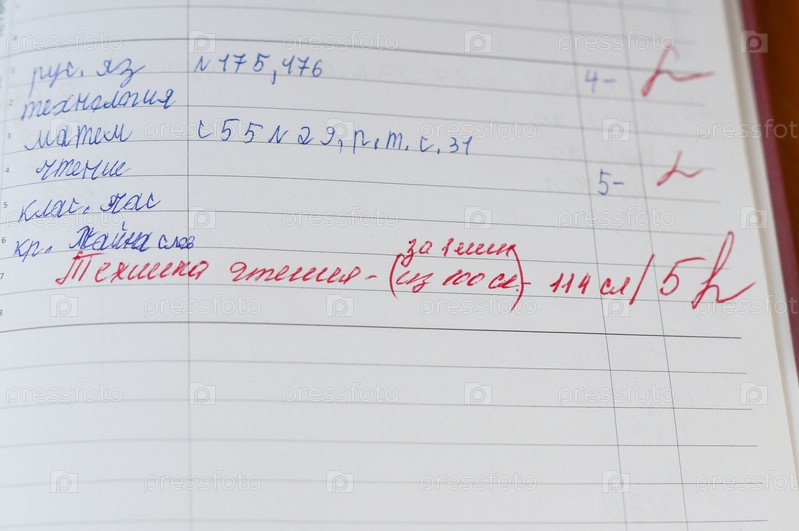 рус. яз № 175, 176 4-
технология
матем с 55 № 29, р. т. с. 31
чтение 5-
клас. час
кр. Тайна слов
за 1 мин
Техника чтения - (из 100 сл.) - 114 сл / 5
1
2
3
4
5
6
7
8
pressfoto